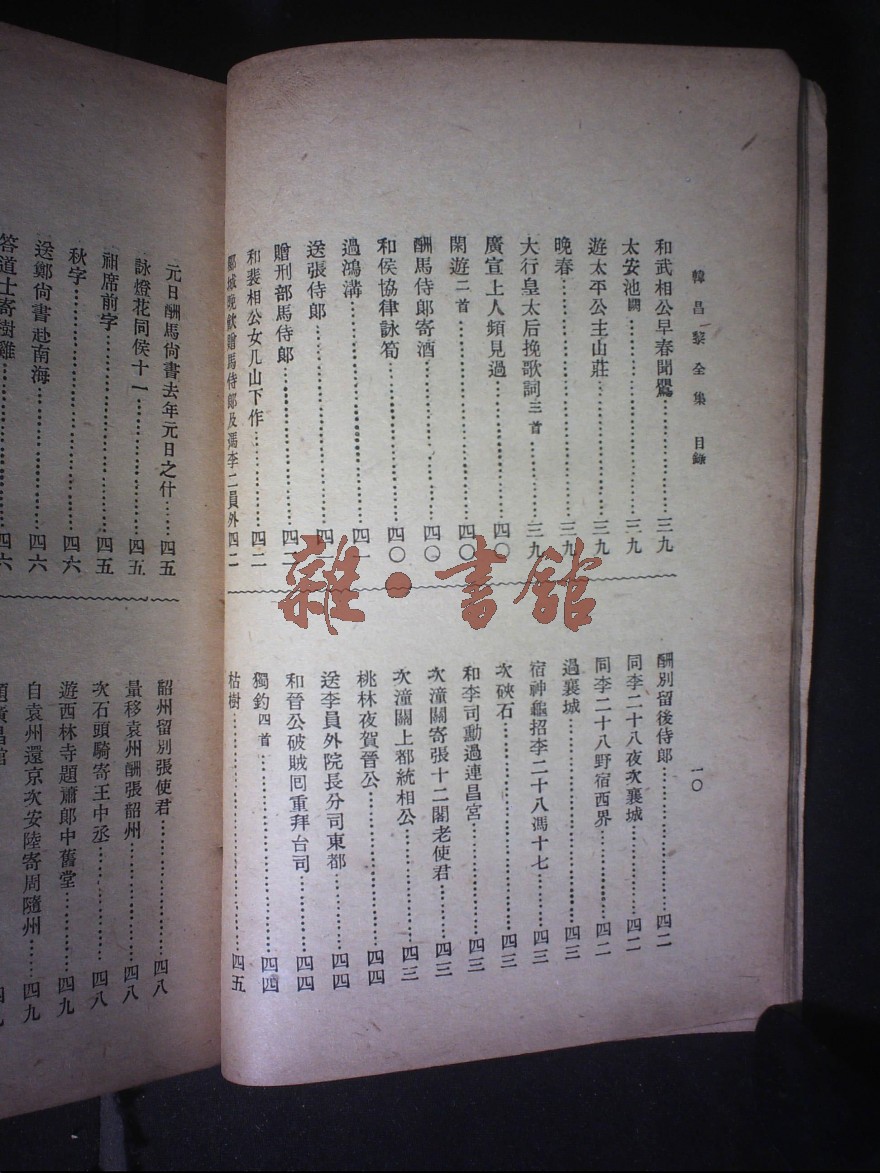 韓昌黎全集 目錄
一〇
和武相公早春聞鶯……三九
太安池闕……三九
遊太平公主山莊……三九
晚春……三九
大行皇太后挽歌詞三首……三九
廣宣上人頻見過……四〇
閑遊二首……四〇
酬馬侍郎寄酒……四〇
和侯協律詠筍……四〇
過鴻溝……四一
送張侍郎……四一
贈刑部馬侍郎……四二
和裴相公女几山下作……四二
郾城晚飲贈馬侍郎及馮李二員外四二
酬別留後侍郎……四二
同李二十八夜次襄城……四二
同李二十八野宿西界……四二
過襄城……四三
宿神龜招李二十八馮十七……四三
次硤石……四三
和李司勳過連昌宮……四三
次潼關寄張十二閣老使君……四三
次潼關上都統相公……四三
桃林夜賀晉公……四四
送李員外院長分司東都……四四
和晉公破賊回重拜台司……四四
獨釣四首……四四
枯樹……四五
元日酬馬尚書去年元日之什……四五
詠燈花同侯十一……四五
祖席前字……四五
秋字……四六
送鄭尚書赴南海……四六
答道士寄樹雞……四六
韶州留別張使君……四八
量移袁州酬張韶州……四八
次石頭驛寄王中丞……四八
遊西林寺題蕭郎中舊堂……四九
自袁州還京次安陸寄周隨州……四九
題廣昌館
雜·書館